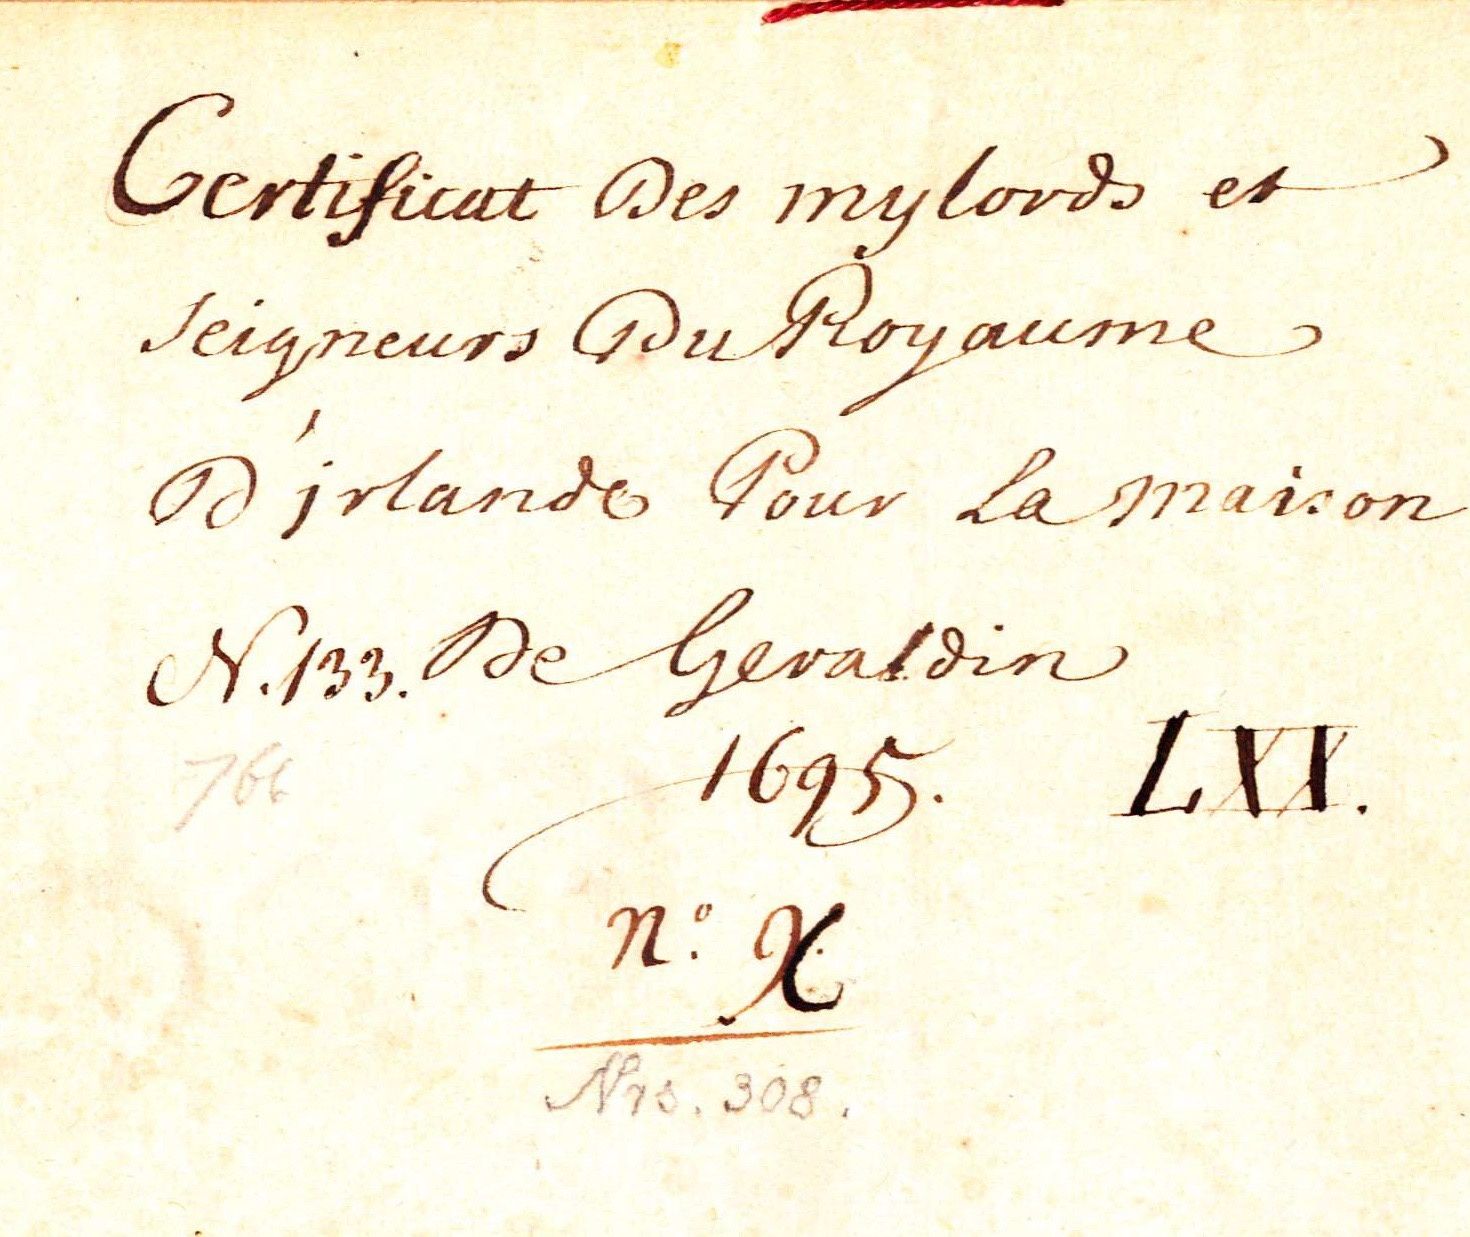 Certificat Des mylords et
seigneurs Du Royaume
D'irlande Pour La maison
N. 133. De Geraldin
1695. LXX.
766
n.º X
Nrs. 308.